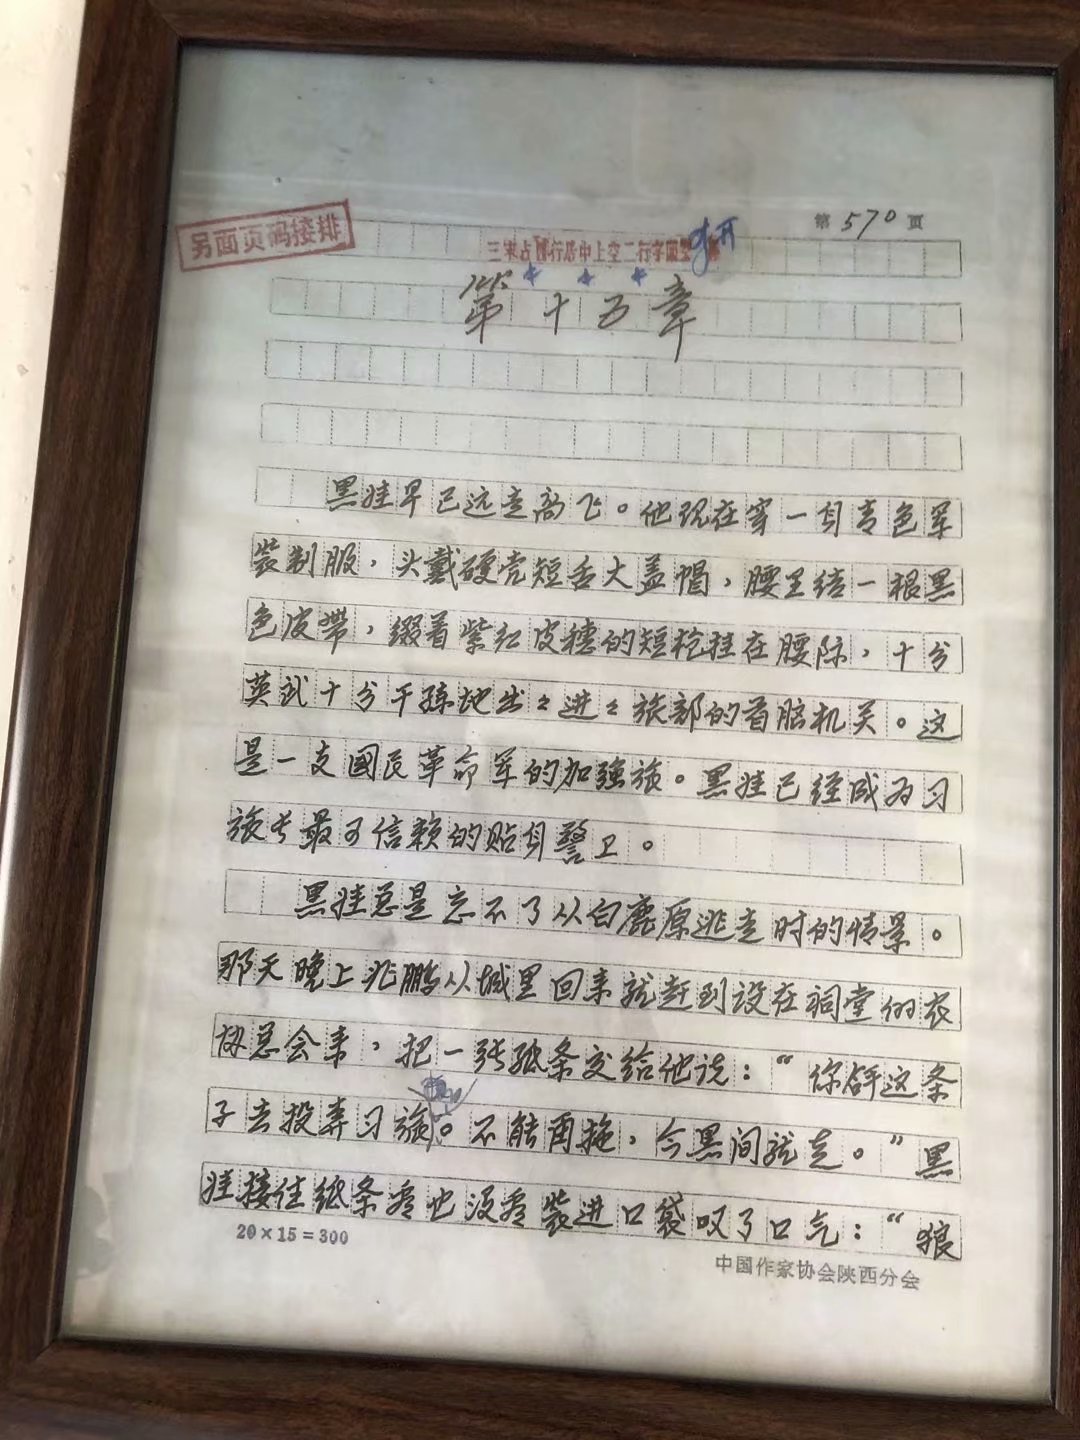 第570页
另面页码接排
三宋占行居中上空二行字
第十五章
黑娃早已远走高飞。他现在穿一身青色军
装制服，头戴硬壳短舌大盖帽，腰里结一根黑
色皮带，缀着紫红皮穗的短枪挂在腰际，十分
英武十分干练地出々进々旅部的首脑机关。这
是一支國民革命军的加强旅。黑娃已经成为习
旅长最可信赖的贴身警卫。
黑娃总是忘不了从白鹿原逃走时的情景。
那天晚上兆鹏从城里回来就赶到设在祠堂的农
协总会来，把一张纸条交给他说：“你拿这条
子去投奔习旅。不能再拖，今黑间就走。”黑
娃接住纸条看也没看装进口袋叹了口气：“狼
20×15=300
中国作家协会陕西分会